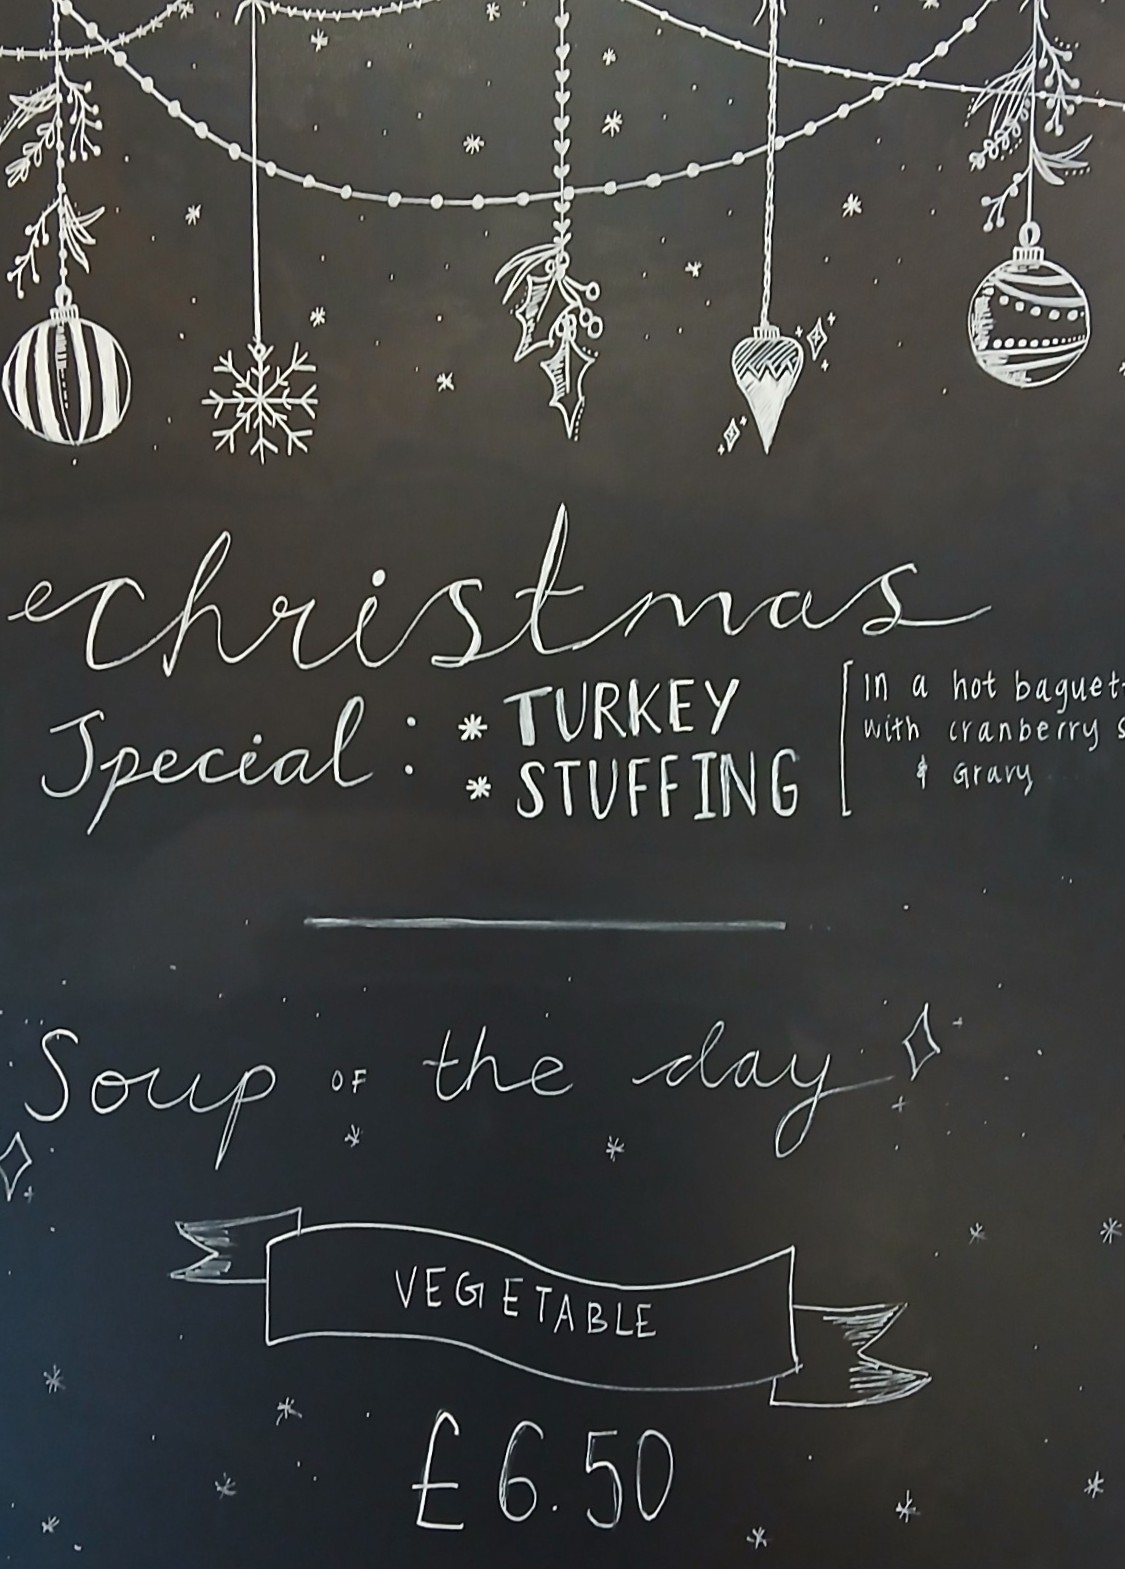 christmas
Special : * TURKEY
* STUFFING
In a hot baguet
with cranberry s
& Gravy
Soup OF the day
VEGETABLE
£6.50